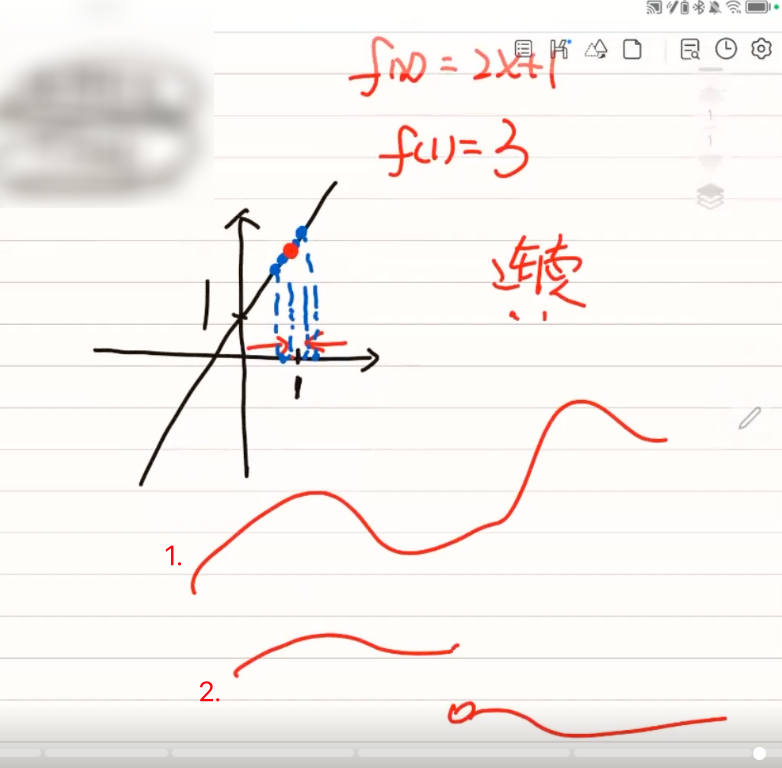 f(x) = 2x+1
f(1) = 3
连续
1
1
1
1
1.
2.